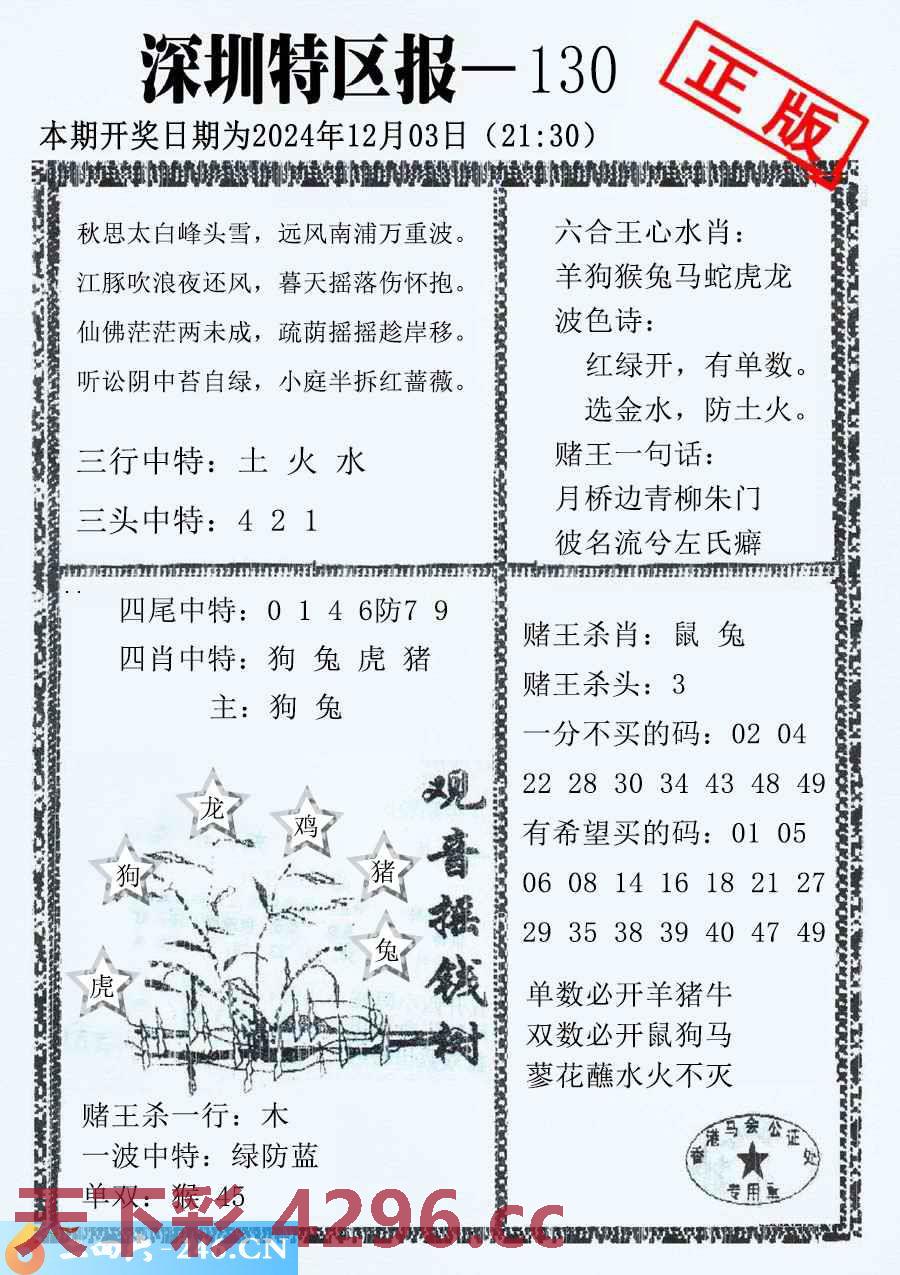 深圳特区报—130
正版
本期开奖日期为2024年12月03日（21:30）
秋思太白峰头雪，远风南浦万重波。
江豚吹浪夜还风，暮天摇落伤怀抱。
仙佛茫茫两未成，疏荫摇摇趁岸移。
听讼阴中苔自绿，小庭半拆红蔷薇。
三行中特：土 火 水
三头中特：4 2 1
六合王心水肖：
羊狗猴兔马蛇虎龙
波色诗：
红绿开，有单数。
选金水，防土火。
赌王一句话：
月桥边青柳朱门
彼名流兮左氏癖
四尾中特：0 1 4 6防7 9
四肖中特：狗 兔 虎 猪
主：狗 兔
龙
鸡
狗
猪
兔
虎
观音摇钱树
赌王杀一行：木
一波中特：绿防蓝
单双：猴 45
赌王杀肖：鼠 兔
赌王杀头：3
一分不买的码：02 04
22 28 30 34 43 48 49
有希望买的码：01 05
06 08 14 16 18 21 27
29 35 38 39 40 47 49
单数必开羊猪牛
双数必开鼠狗马
蓼花蘸水火不灭
香港马会公证处
专用章
天下彩 4296.cc